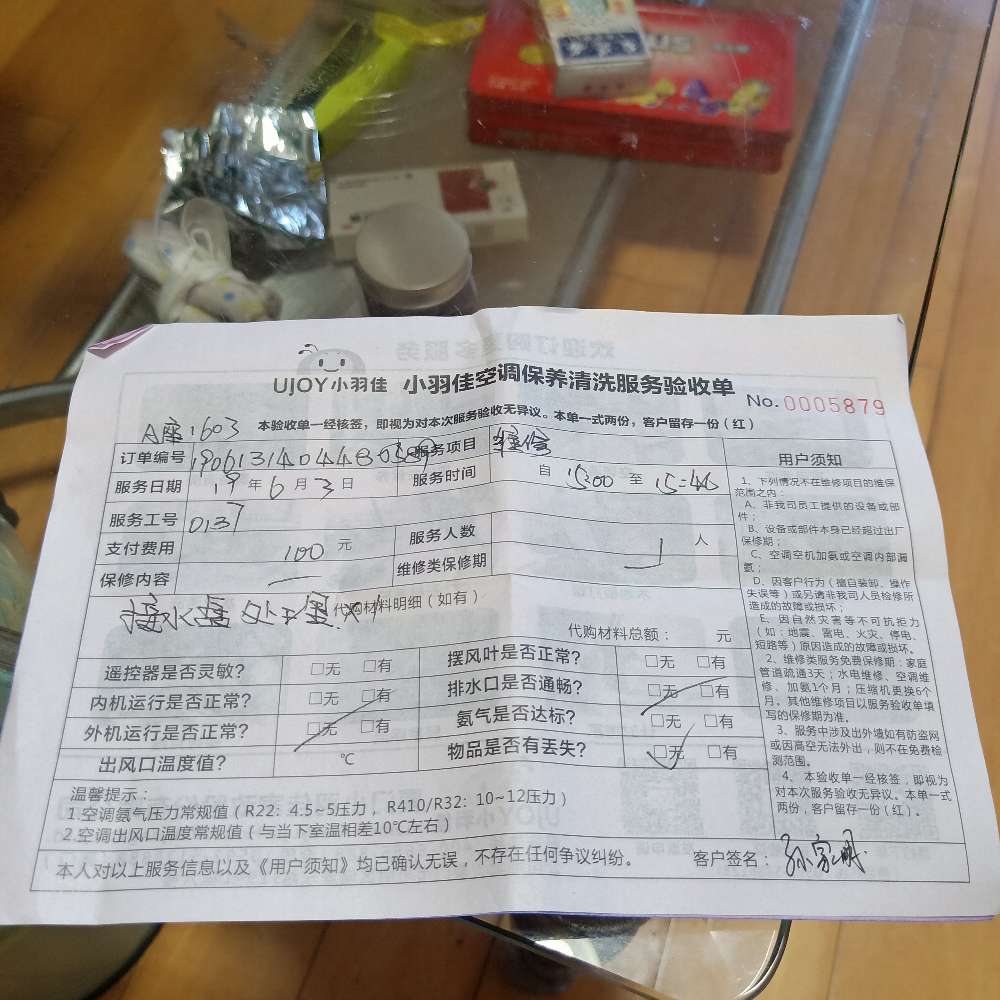 UJOY小羽佳 小羽佳空调保养清洗服务验收单
No.0005879
A座1603 本验收单一经核签，即视为对本次服务验收无异议。本单一式两份，客户留存一份（红）
订单编号 服务项目 维修
服务日期 19年6月3日 服务时间 自15:00至15:46
服务工号 0137
支付费用 100元 服务人数 1人
保修内容 — 维修类保修期
代购材料明细（如有）
接水盘处理
代购材料总额： 元
遥控器是否灵敏？ □无 □有 摆风叶是否正常？ □无 □有
内机运行是否正常？ □无 □有 排水口是否通畅？ □无 □有
外机运行是否正常？ □无 □有 氨气是否达标？ □无 □有
出风口温度值？ ℃ 物品是否有丢失？ □无 □有
温馨提示：
1.空调氨气压力常规值（R22：4.5~5压力，R410/R32：10~12压力）
2.空调出风口温度常规值（与当下室温相差10℃左右）
本人对以上服务信息以及《用户须知》均已确认无误，不存在任何争议纠纷。 客户签名：
用户须知
1、下列情况不在维修项目的维保
范围之内：
A、非我司员工提供的设备或部
件；
B、设备或部件本身已经超过出厂
保修期；
C、空调空机加氨或空调内部漏
氨；
D、因客户行为（擅自装卸、操作
失误等）或另请非我司人员检修所
造成的故障或损坏；
E、因自然灾害等不可抗拒力
（如：地震、雷电、火灾、停电、
短路等）原因造成的故障或损坏。
2、维修类服务免费保修期：家庭
管道疏通3天；水电维修、空调维
修、加氨1个月；压缩机更换6个
月。其他维修项目以服务验收单填
写的保修期为准。
3、服务中涉及出外墙如有防盗网
或因高空无法外出，则不在免费检
测范围。
4、本验收单一经核签，即视为
对本次服务验收无异议。本单一式
两份，客户留存一份（红）。